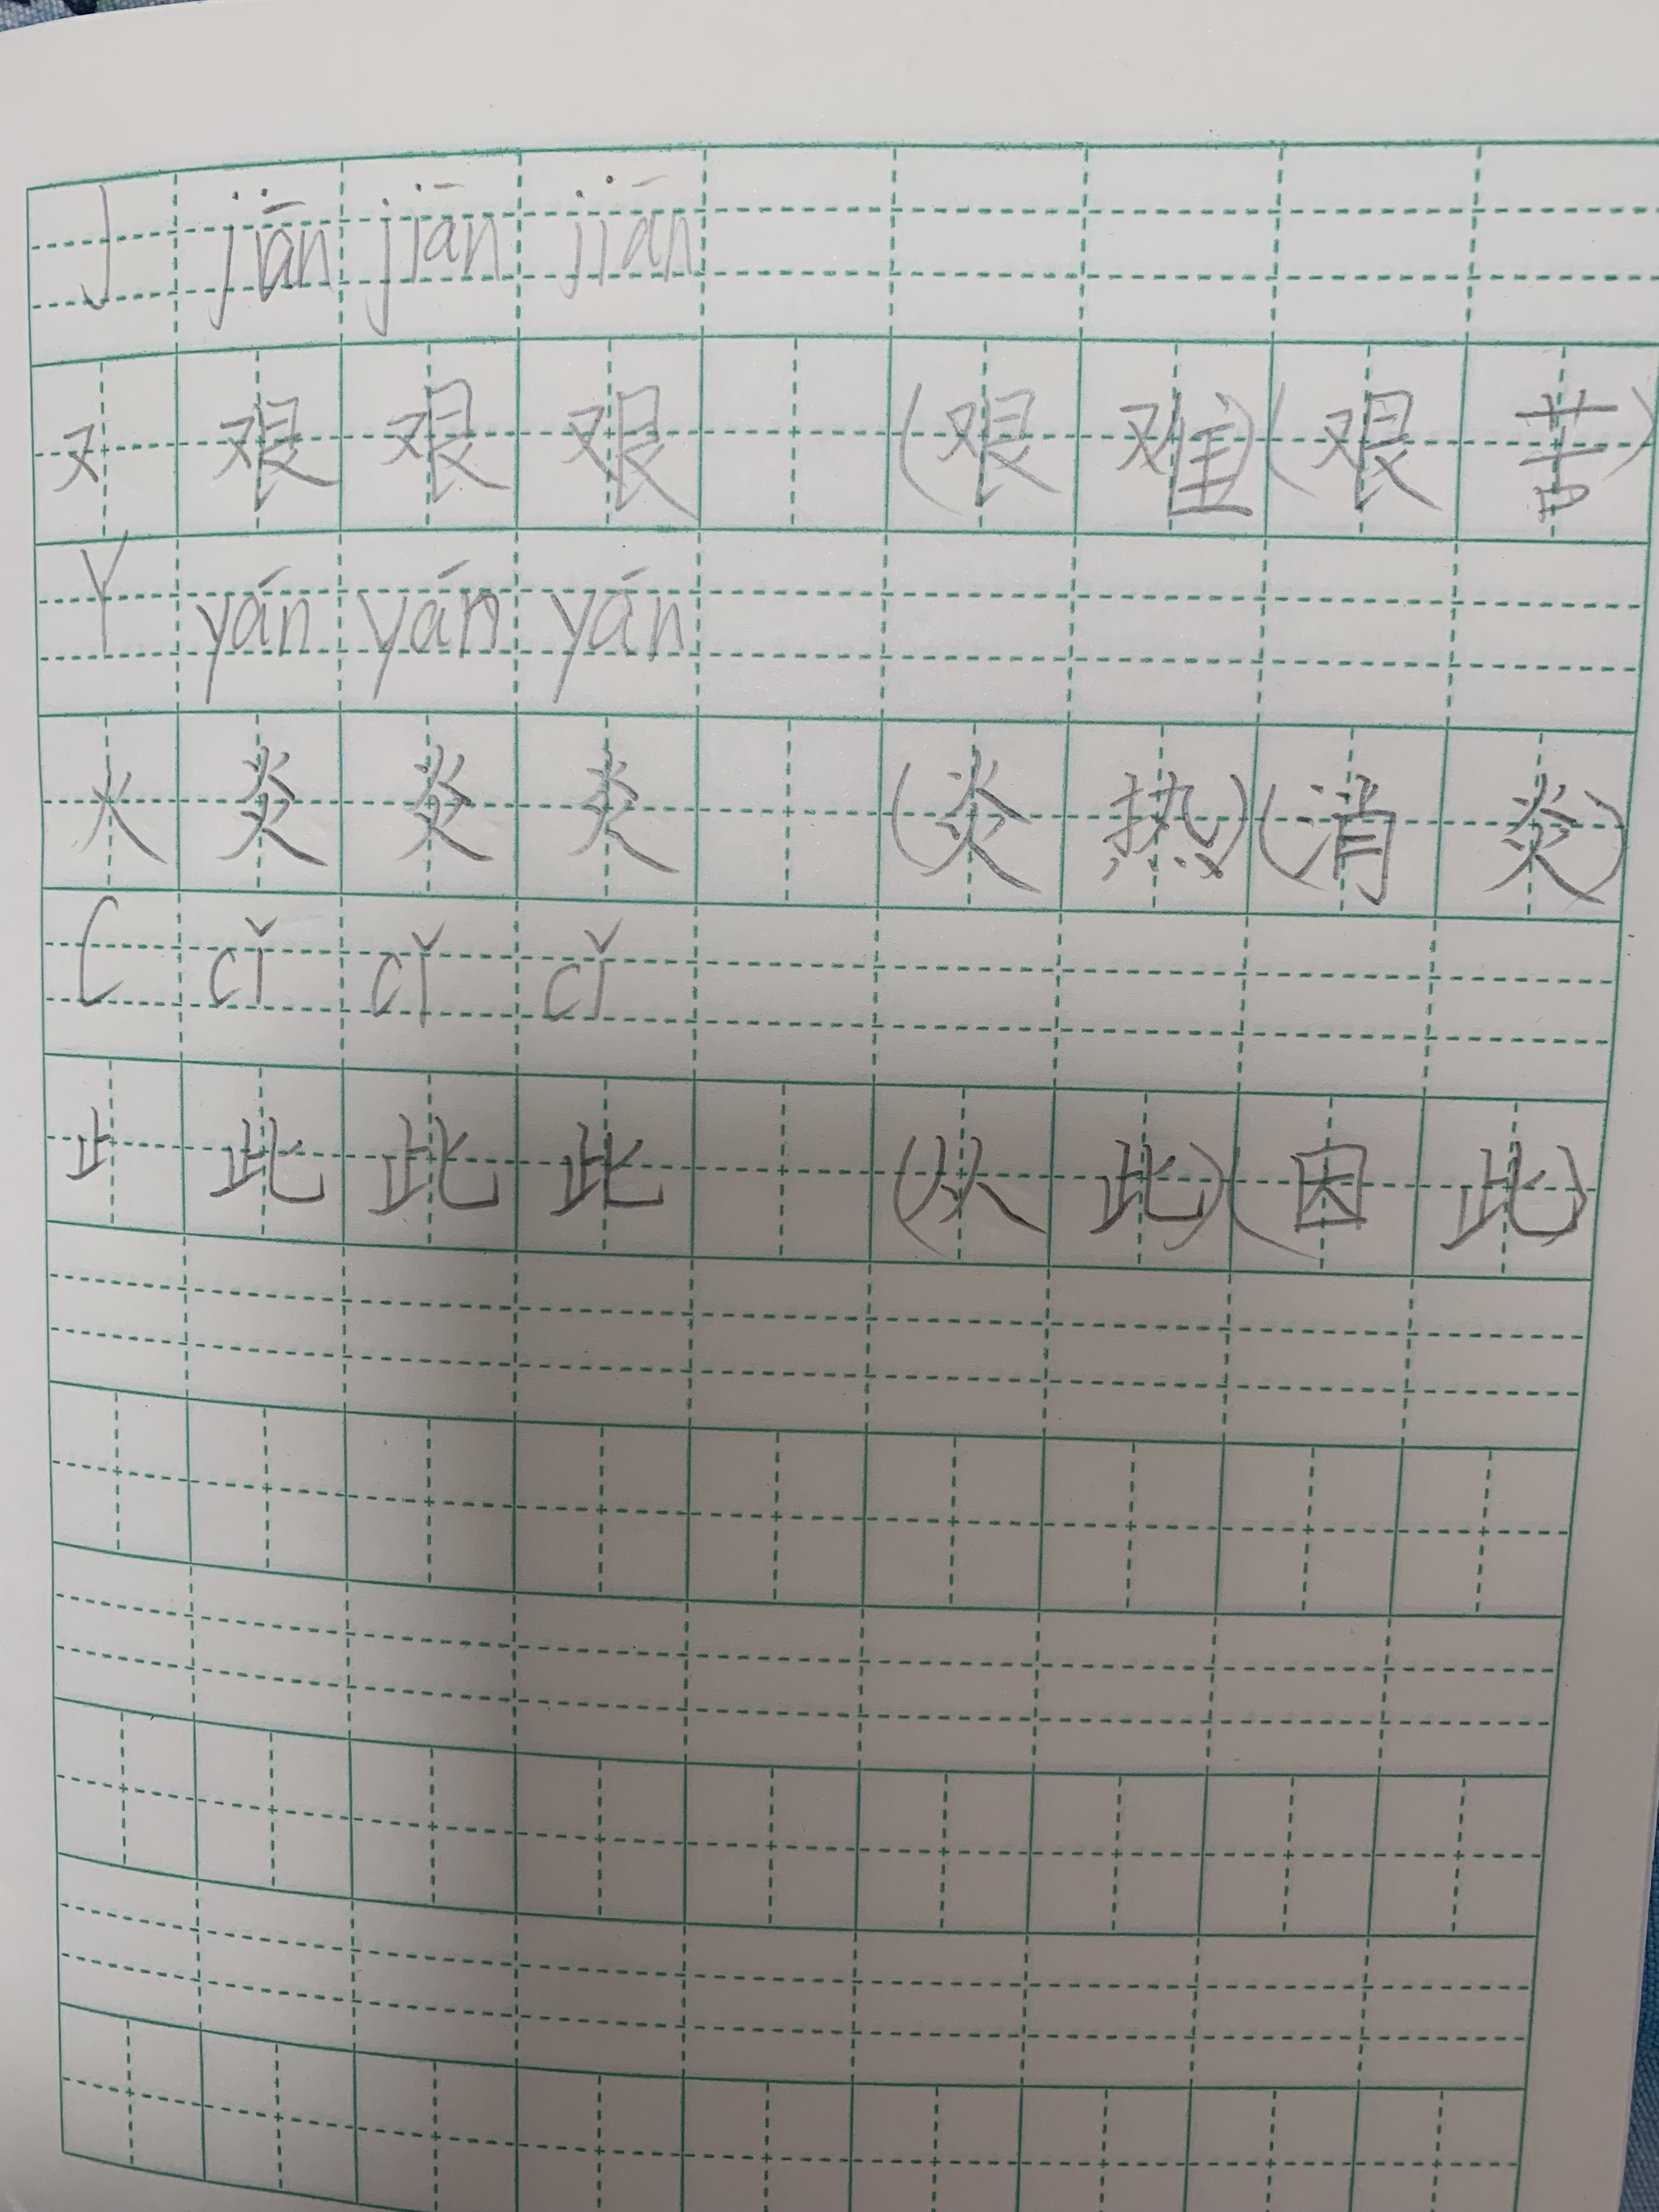 J jiān jiān jiān
又 艰 艰 艰 (艰 难) (艰 苦)
Y yán yán yán
火 炎 炎 炎 (炎 热) (消 炎)
C cǐ cǐ cǐ
止 此 此 此 (从 此) (因 此)